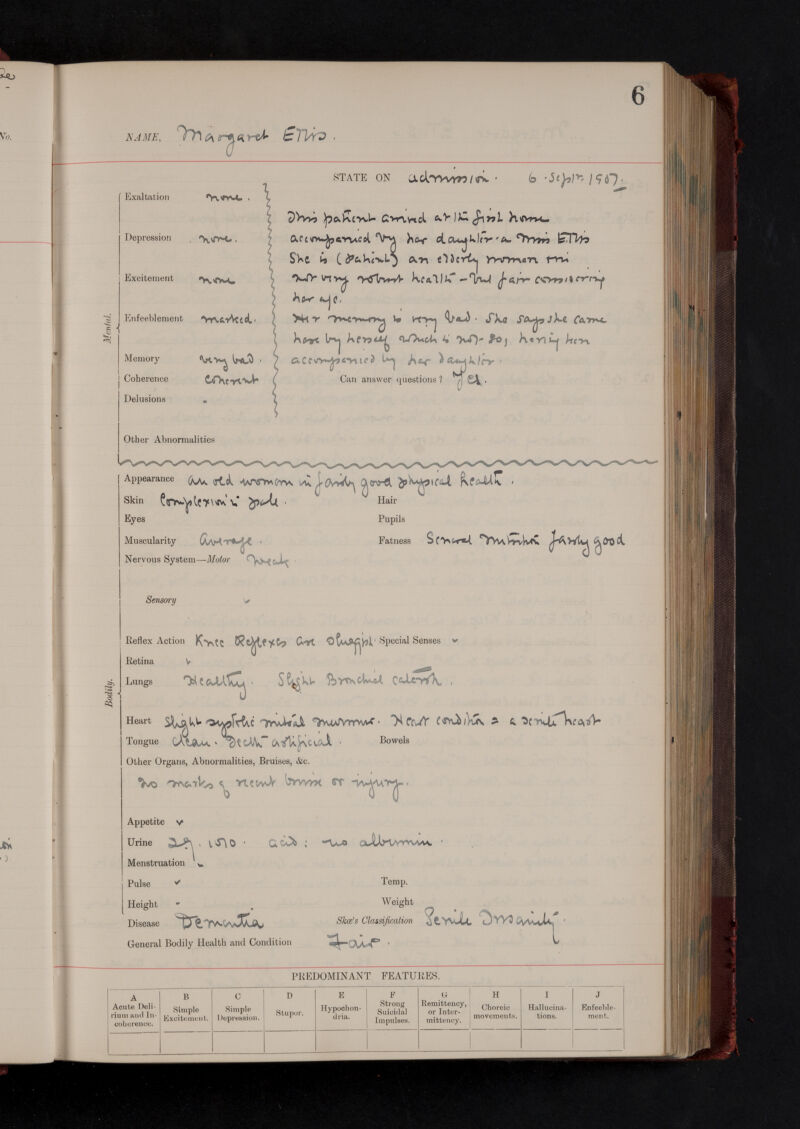 6
NAME, Margaret Ellis.
STATE ON admission. 6 Septr. 1907.
Mental.
Exaltation none.
Depression none.
Excitement none
Enfeeblement marked.
Memory very bad.
Coherence Coherent
Delusions
Other Abnormalities
This patient arrived at the first home
accompanied by her daughter - a Miss Ellis
She is (patient) an elderly woman
not very robust health - but fair considering
her age.
Her memory is very bad. She says she came
here by herself which is not so, having been
accompanied by her daughter.
Can answer questions? Yes.
Bodily.
Appearance An old woman in fairly good physical health.
Skin Complexion is pale. Hair
Eyes Pupils
Muscularity Average. Fatness General nutrition fairly good
Nervous System—Motor Weak.
Sensory
Reflex Action Knee Reflexes are sluggish. Special Senses
Retina
Lungs Healthy. Slight Bronchial catarrh.
Heart Slight systolic mitral murmur. Heart condition = a senile heart
Tongue Clean. Teeth artificial. Bowels
Other Organs, Abnormalities, Bruises, &c.
No marks of recent bruise or injury.
Appetite
Urine 1010. acid; no albumin.
Menstruation
Pulse Temp.
Height Weight
Disease Dementia Skae's Classification Senile Insanity.
General Bodily Health and Condition Fair.
PREDOMINANT FEATURES.
A Acute Delirium and Incoherence.
B Simple Excitement.
C Simple Depression.
D Stupor.
E Hypochondria.
F Strong Suicidal Impulses.
G Remittency, or Intermittency.
H Choreic movements.
I Hallucinations.
J Enfeeblement.